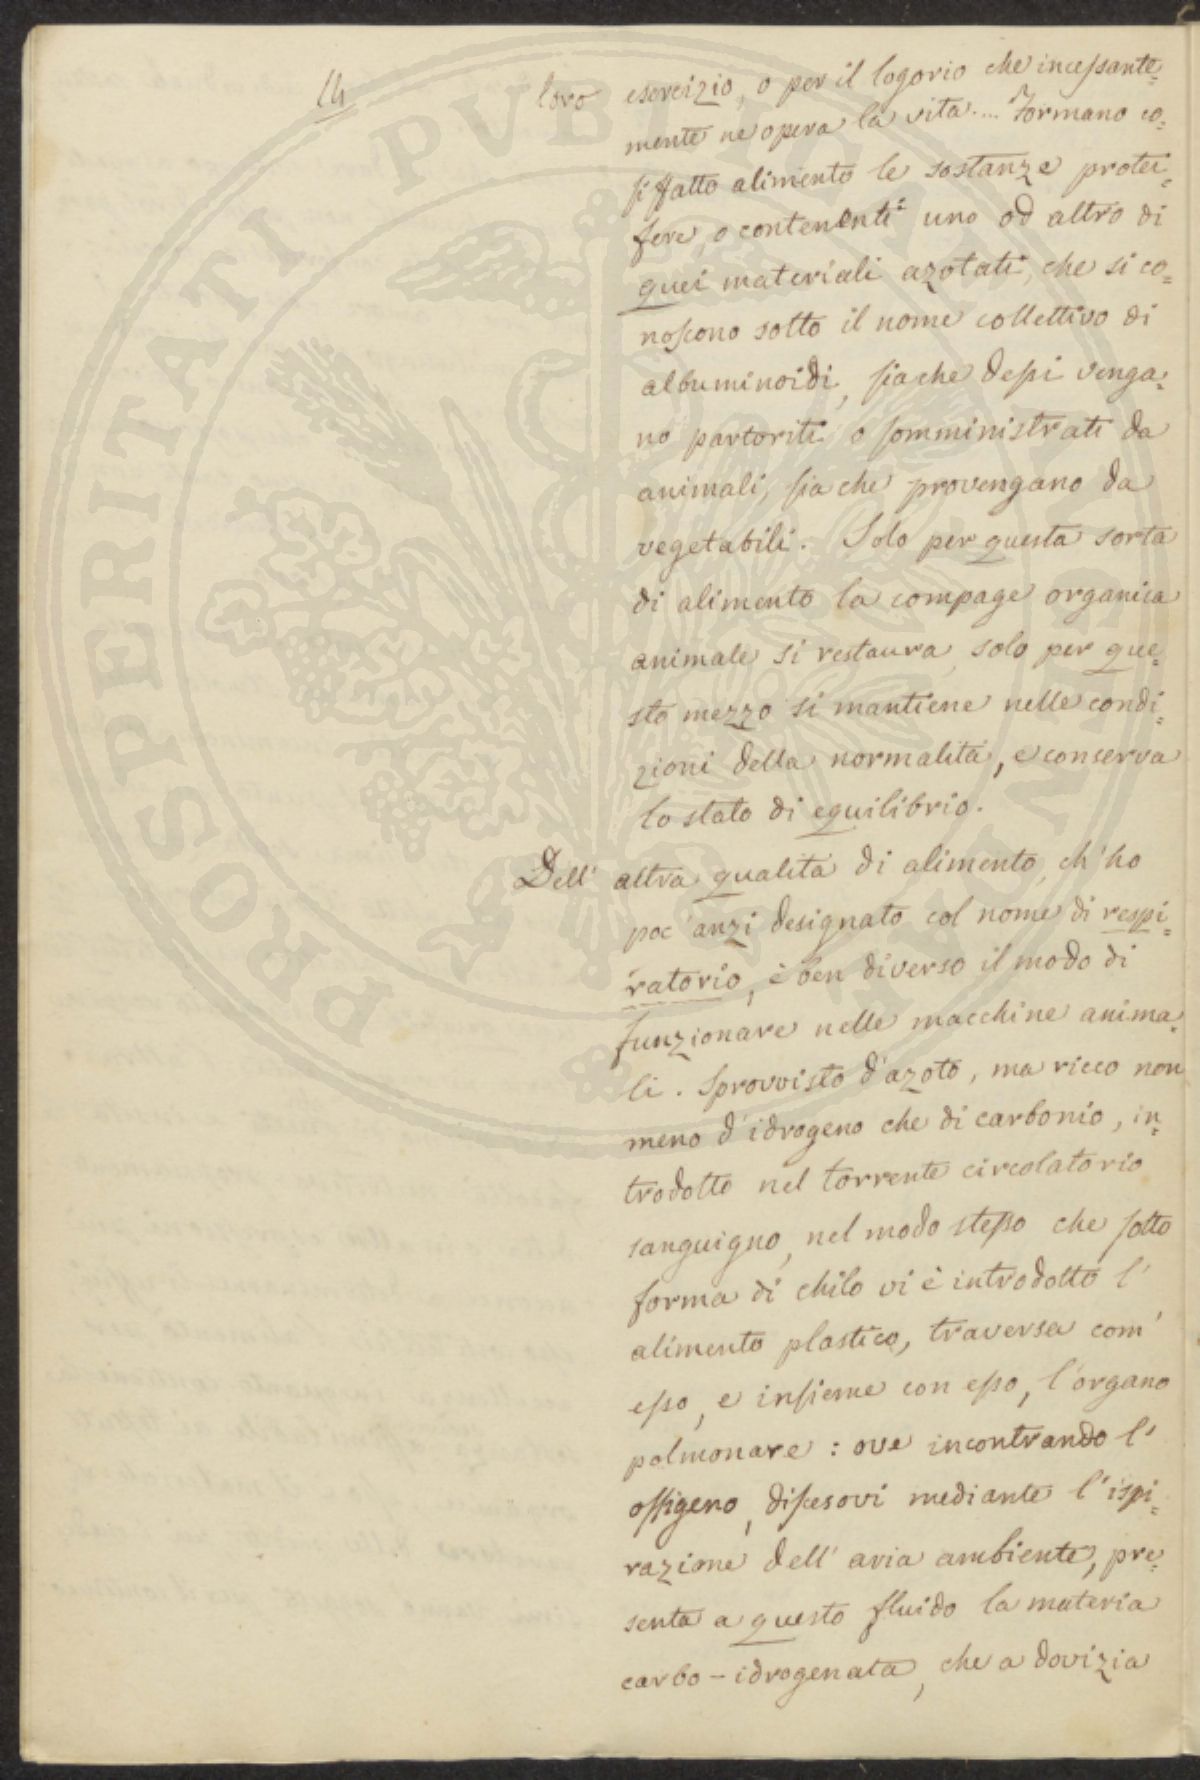 14
loro esercizio, o per il logorio che incessante=
mente ne opera la vita.... Formano co=
sì fatto alimento le sostanze protei=
fere, o contenenti uno od altro di
quei materiali azotati, che si co=
noscono sotto il nome collettivo di
albuminoidi, siache dessi venga=
no partoriti o somministrati da
animali, siache provengano da
vegetabili. Solo per questa sorta
di alimento la compage organica
animale si restaura, solo per que=
sto mezzo si mantiene nelle condi=
zioni della normalità, e conserva
lo stato di equilibrio.
Dell' altra qualità di alimento, ch' ho
poc' anzi designato col nome di respi=
ratorio, è ben diverso il modo di
funzionare nelle macchine anima=
li. Sprovvisto d'azoto, ma ricco non
meno d'idrogeno che di carbonio, in=
trodotto nel torrente circolatorio
sanguigno, nel modo stesso che sotto
forma di chilo vi è introdotto l'
alimento plastico, traversa com'
esso, e insieme con esso, l'organo
polmonare: ove incontrando l'
ossigeno, discesovi mediante l'ispi=
razione dell' aria ambiente, pre=
senta a questo fluido la materia
carbo-idrogenata, che a dovizia
PROSPERITATI PVBLICAE AVGENDAE